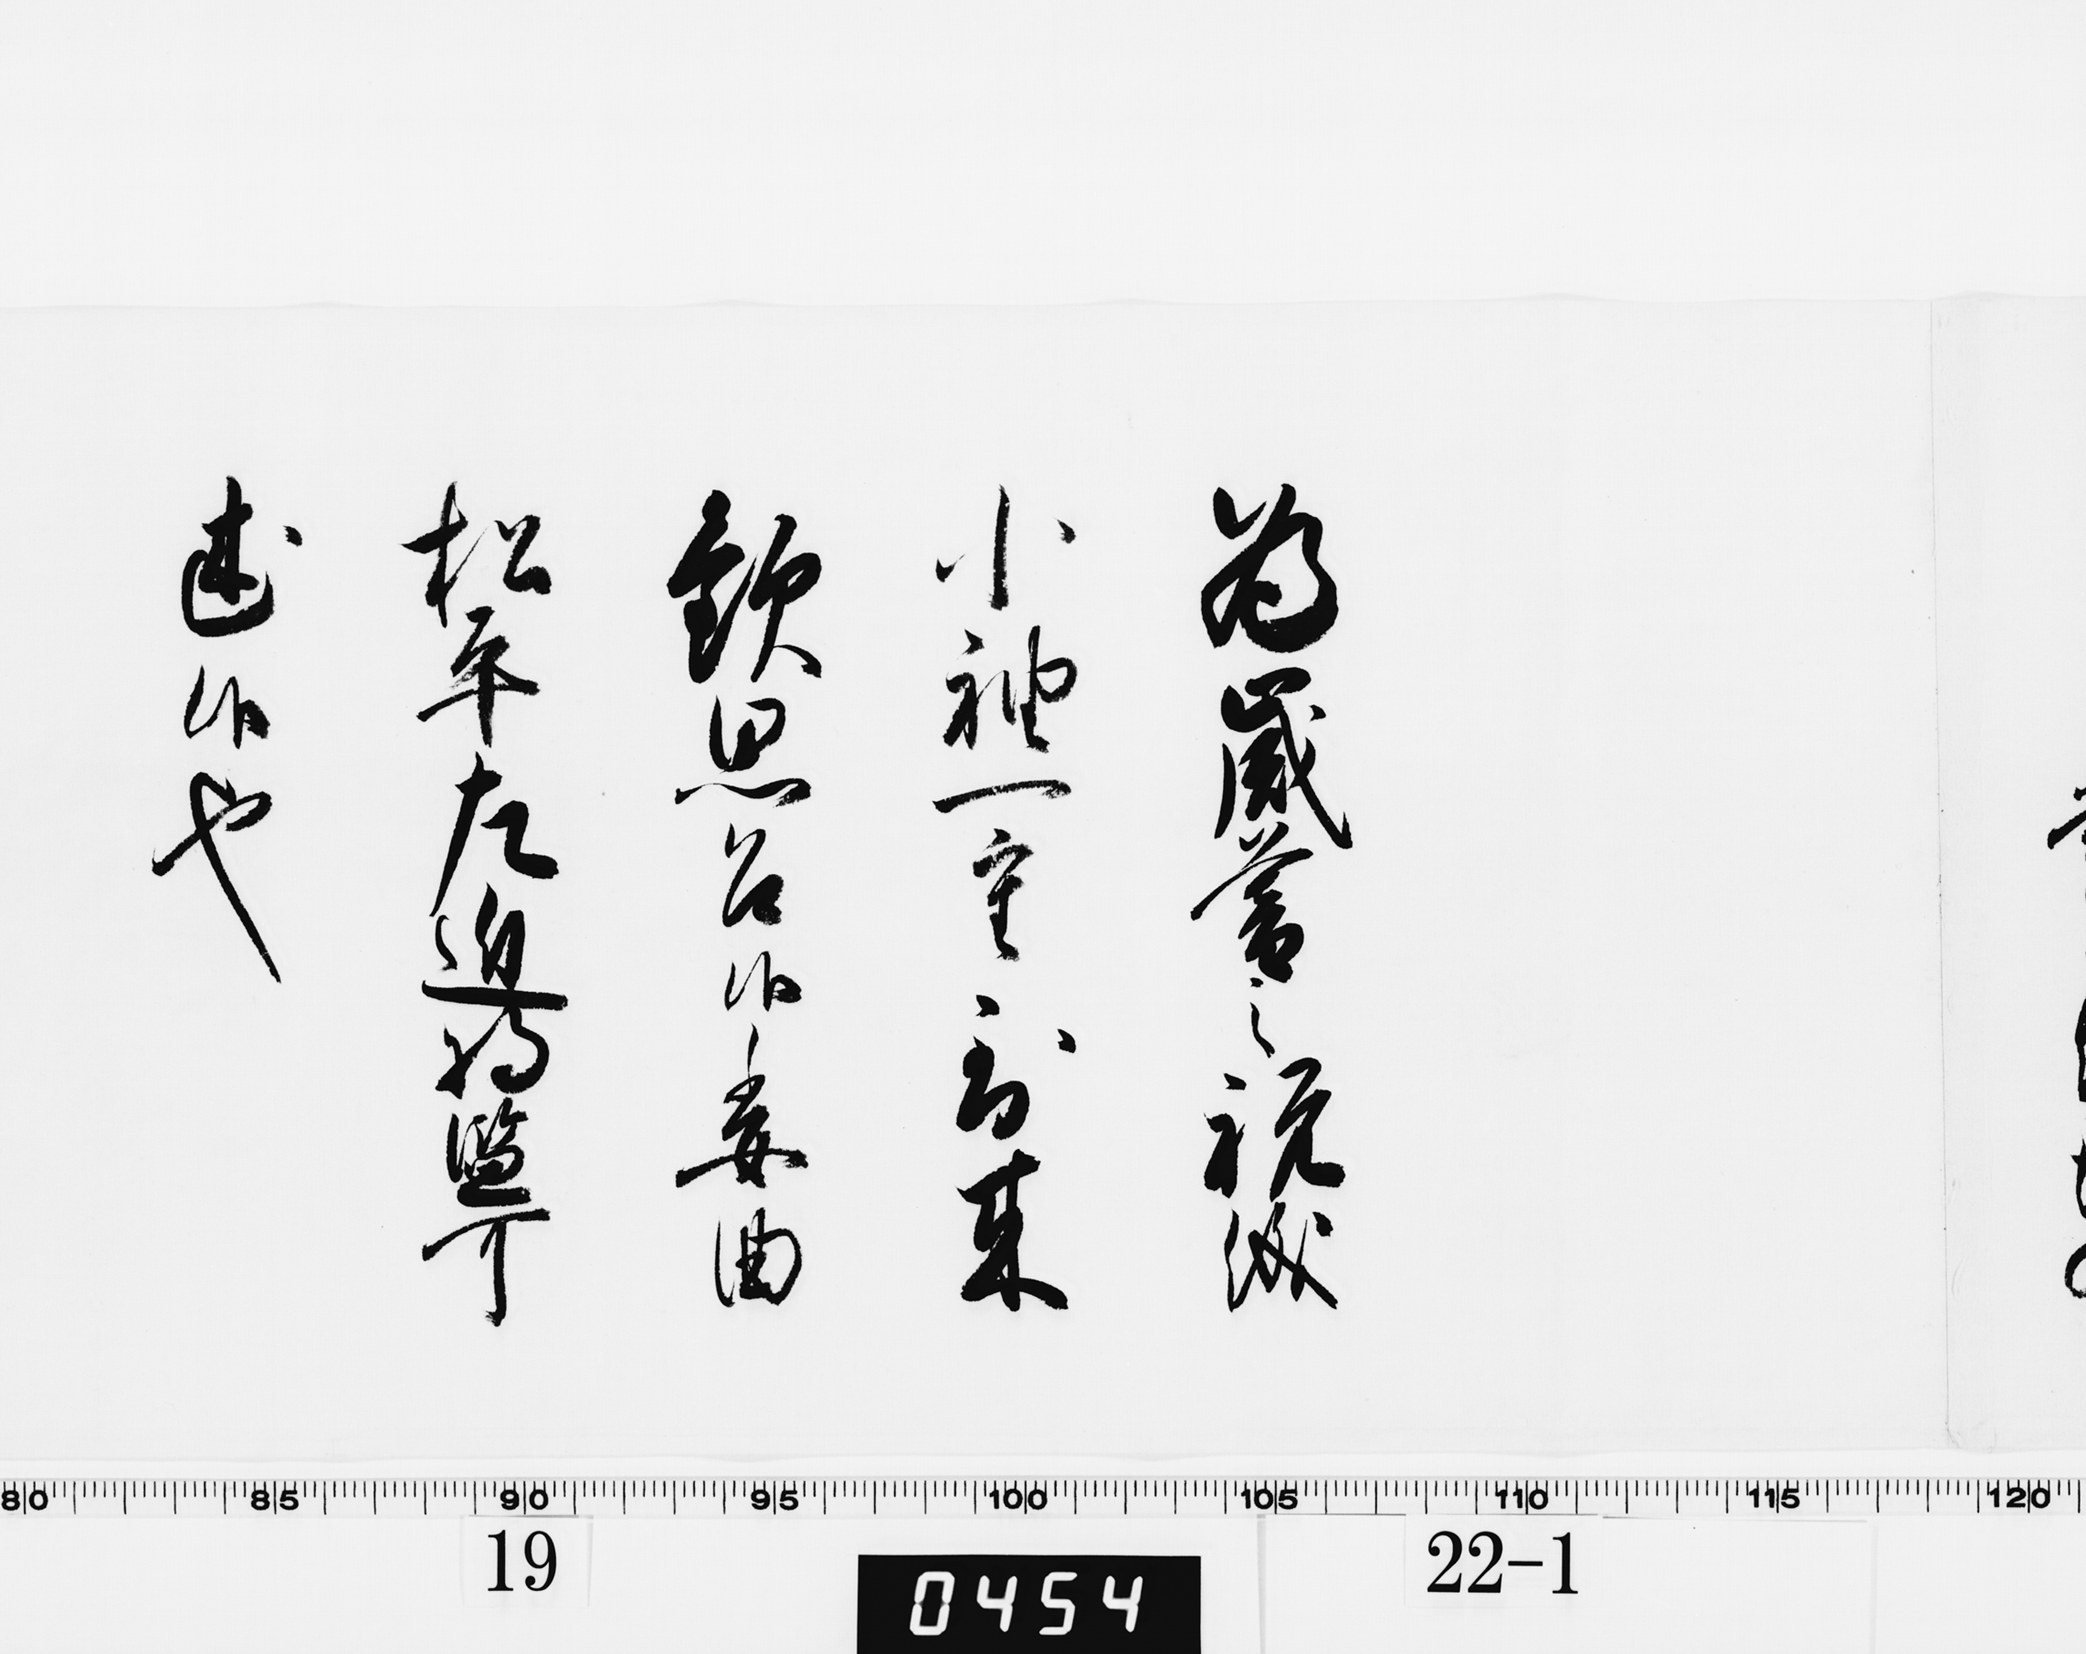 為歳暮之祝儀
小袖一重到来
歓思召候委曲
松平左近将監可
述候也
80 85 90 95 100 105 110 115 120
19
22-1
0454